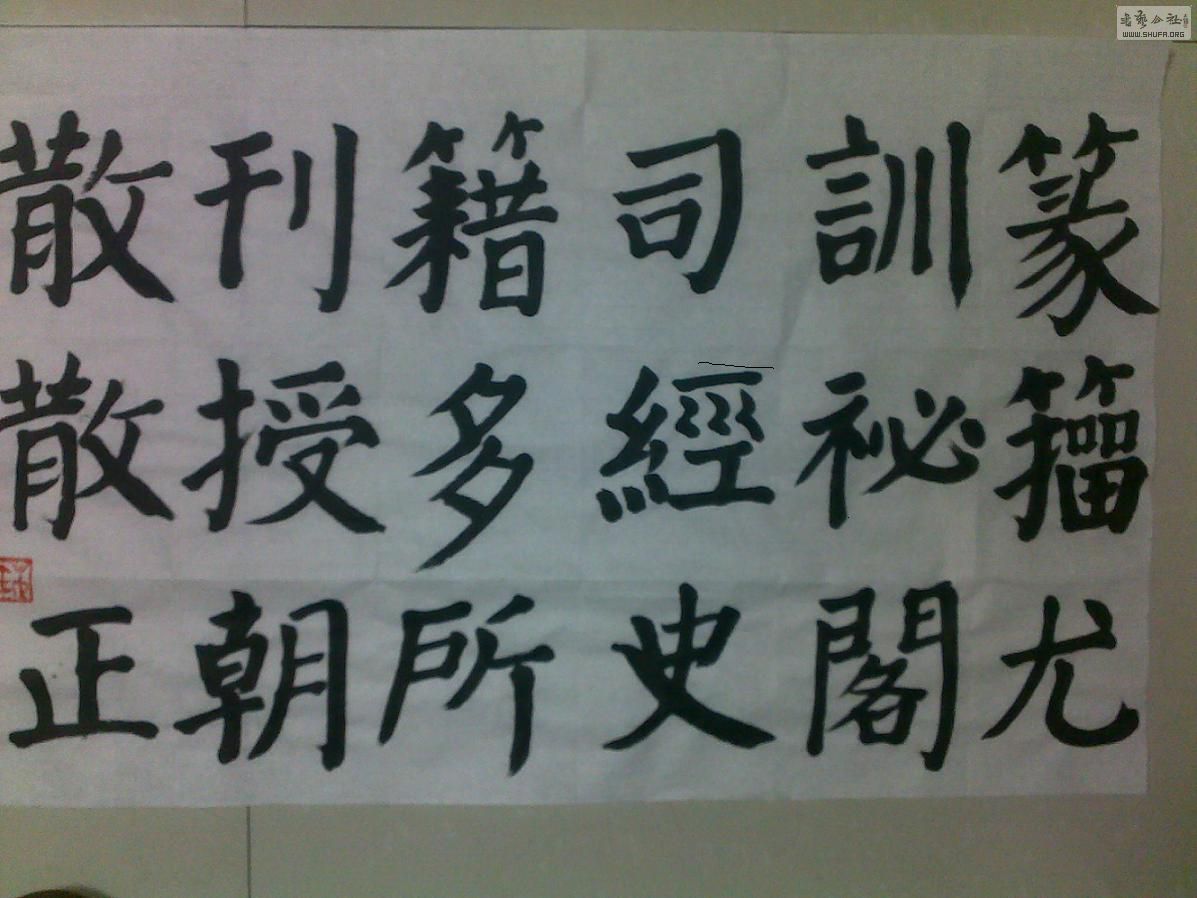 篆籀尤
訓祕閣
司經史
籍多所
刊授朝
散散正
WWW.SHUFA.ORG